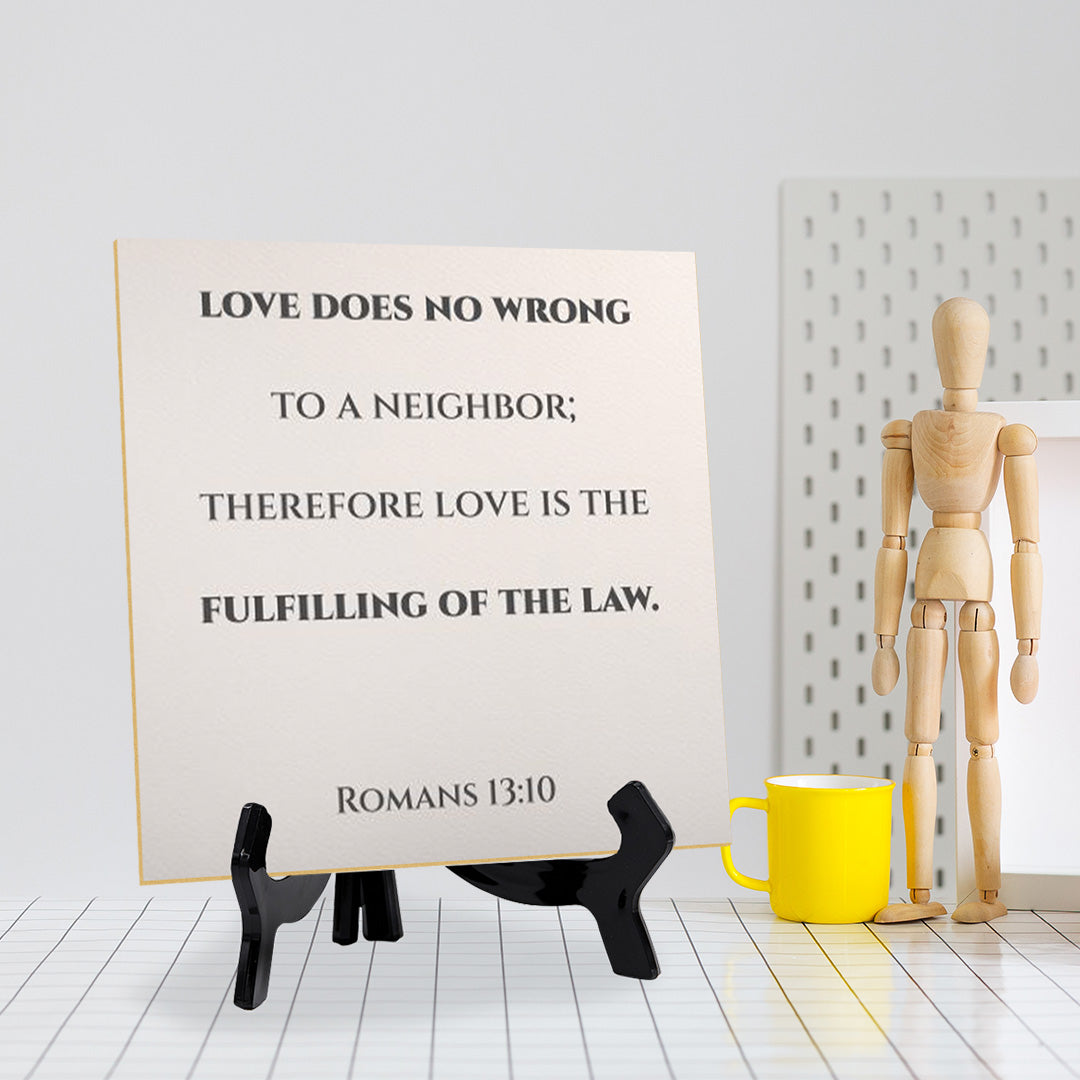 LOVE DOES NO WRONG
TO A NEIGHBOR;
THEREFORE LOVE IS THE
FULFILLING OF THE LAW.
ROMANS 13:10